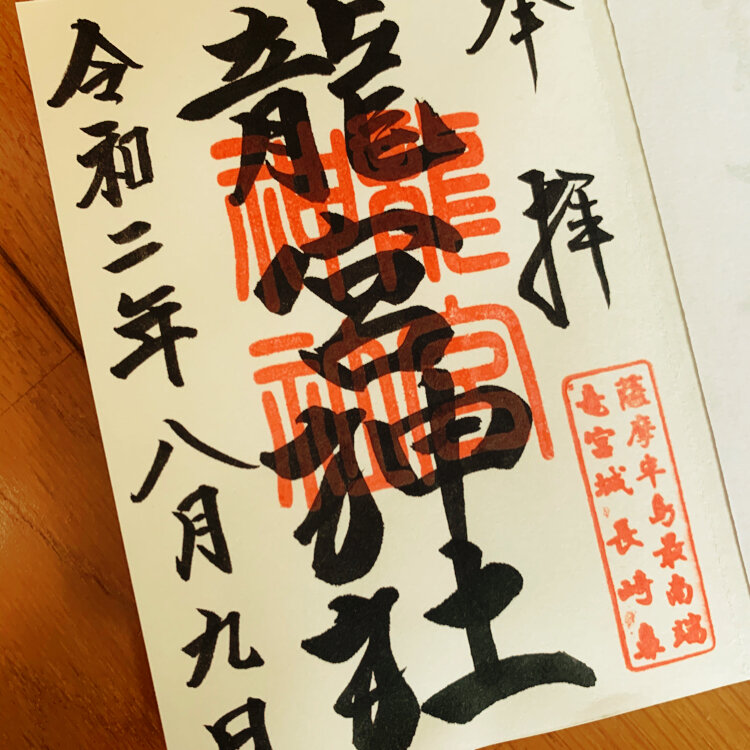 奉拝
薩摩半島最南端
竜宮城長崎鼻
龍宮神社
龍宮神社
令和二年八月九日